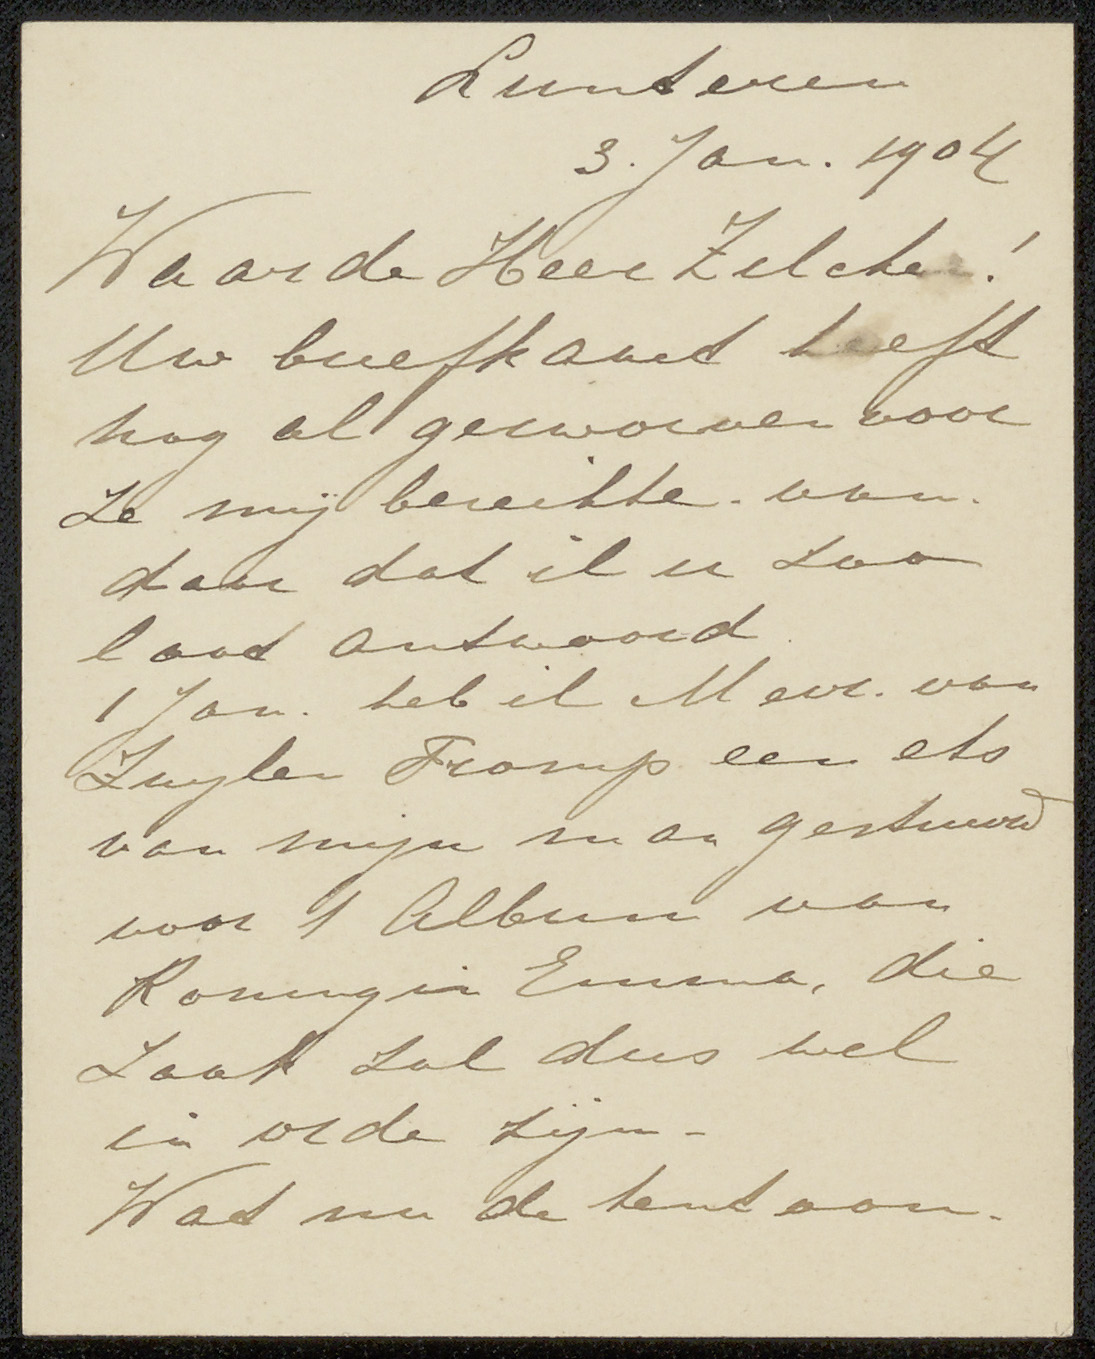 Lunteren
3. Jan. 1904
Waarde Heer Zilcken!
Uw briefkaart heeft
nog al gezworven voor
ze mij bereikte. van.
daar dat ik u zoo
laat antwoord.
1 Jan. heb ik Mevr. van
Zuylen Tromp een ets
van mijn man gestuurd
voor 't Album van
Koningin Emma, die
zaak zal dus wel
in orde zijn -
Wat nu de tentoon.